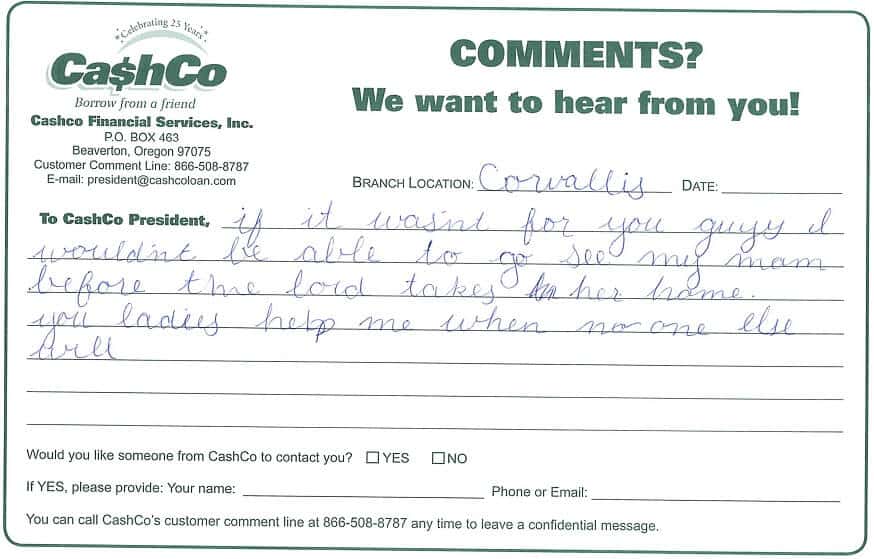 *Celebrating 25 Years*
Ca$hCo
Borrow from a friend
Cashco Financial Services, Inc.
P.O. BOX 463
Beaverton, Oregon 97075
Customer Comment Line: 866-508-8787
E-mail: president@cashcoloan.com
COMMENTS?
We want to hear from you!
BRANCH LOCATION: Corvallis DATE:
To CashCo President, if it wasnt for you guys I
wouldn't be able to go see my mom
before the lord takes her home.
you ladies help me when no one else
will
Would you like someone from CashCo to contact you? ☐ YES ☐ NO
If YES, please provide: Your name: Phone or Email:
You can call CashCo's customer comment line at 866-508-8787 any time to leave a confidential message.